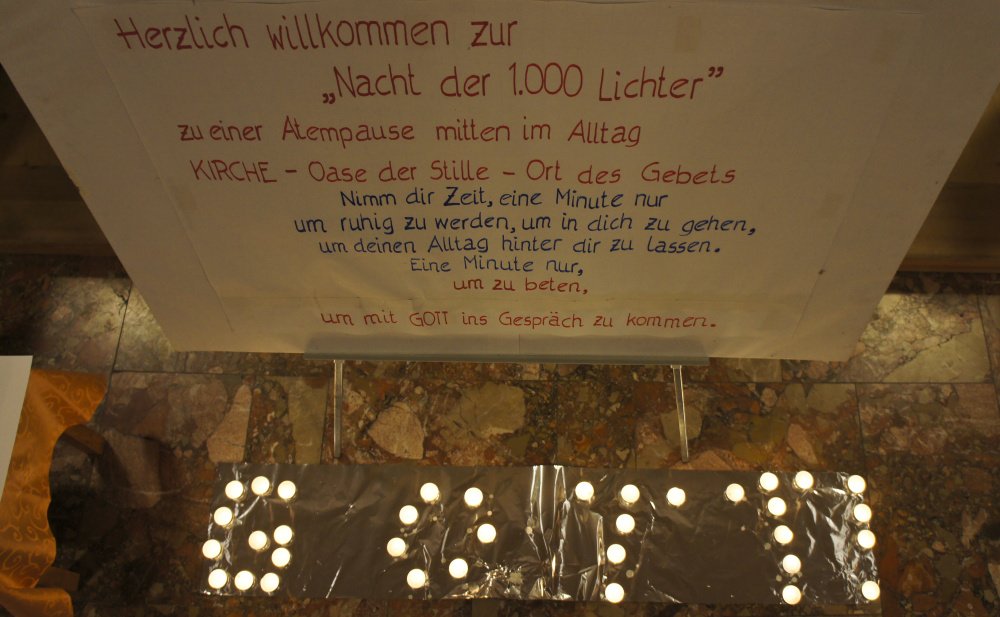 Herzlich willkommen zur
„Nacht der 1.000 Lichter”
zu einer Atempause mitten im Alltag
KIRCHE – Oase der Stille – Ort des Gebets
Nimm dir Zeit, eine Minute nur
um ruhig zu werden, um in dich zu gehen,
um deinen Alltag hinter dir zu lassen.
Eine Minute nur,
um zu beten,
um mit GOTT ins Gespräch zu kommen.
GOTT!